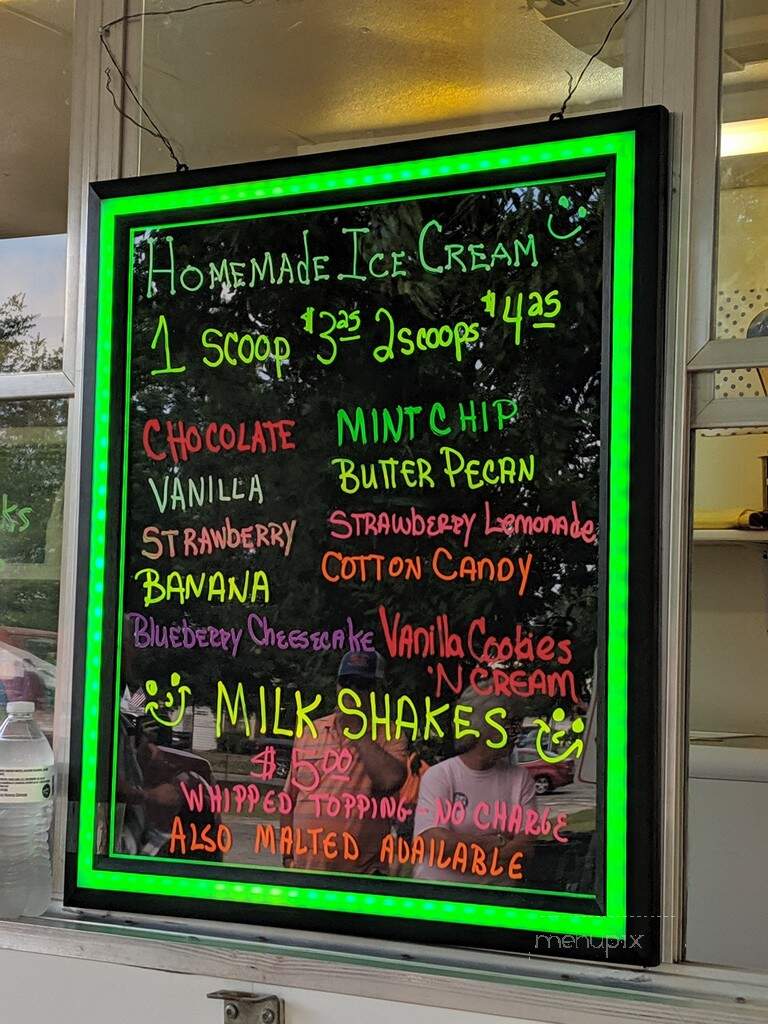 Homemade Ice Cream
1 Scoop $3.25 2 Scoops $4.25
Chocolate
Vanilla
Strawberry
Banana
Blueberry Cheesecake
Mint Chip
Butter Pecan
Strawberry Lemonade
Cotton Candy
Vanilla Cookies
'N Cream
Milk Shakes
$5.00
Whipped Topping - No Charge
Also Malted Available
ks
menupix